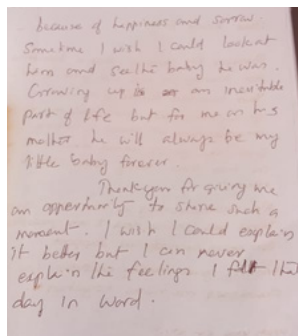 because of happiness and sorrow.
Sometime I wish I could look at
him and see the baby he was.
Growing up is an inevitable
part of life but for me as his
mother he will always be my
little baby forever.
Thank you for giving me
an opportunity to share such a
moment. I wish I could explain
it better but I can never
explain the feelings I felt that
day in word.